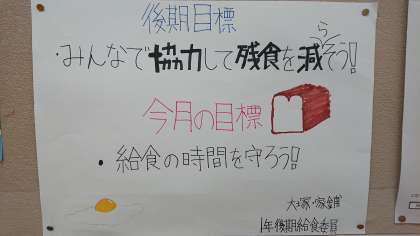 後期目標
・みんなで協力して残食を減らそう!
今月の目標
・給食の時間を守ろう!
大塚・塚舘
1年後期給食委員